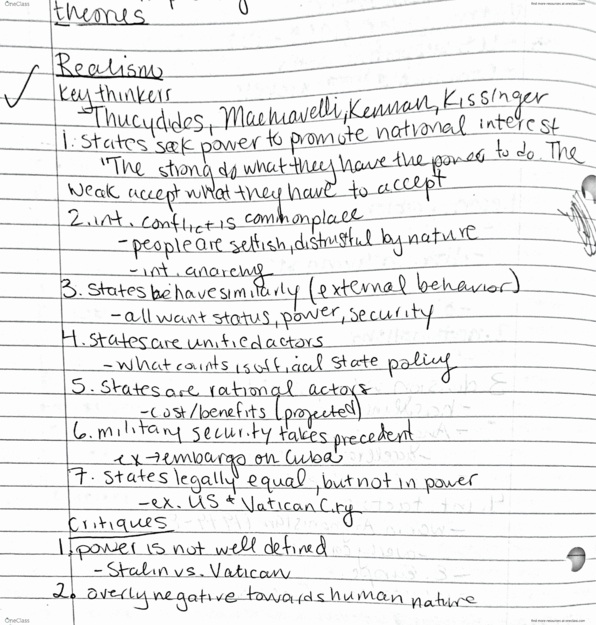 OneClass
find more resources at oneclass.com
theories
Realism
Key thinkers
- Thucydides, Machiavelli, Kennan, Kissinger
1. States seek power to promote national interest
"The strong do what they have the power to do. The
weak accept what they have to accept
2. int. conflict is commonplace
- people are selfish, distrustful by nature
- int. anarchy
3. States behave similarly (external behavior)
- all want status, power, security
4. states are unified actors
- what counts is official state policy
5. States are rational actors
- cost/benefits (projected)
6. military security takes precedent
ex → embargo on Cuba
7. States legally equal, but not in power
- ex. US + Vatican City
Critiques
1. power is not well defined
- Stalin vs. Vatican
2. overly negative towards human nature
OneClass
find more resources at oneclass.com